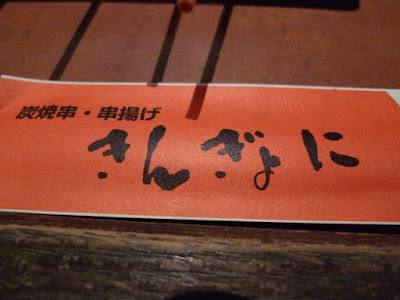 炭焼串・串揚げ
きんぎょに